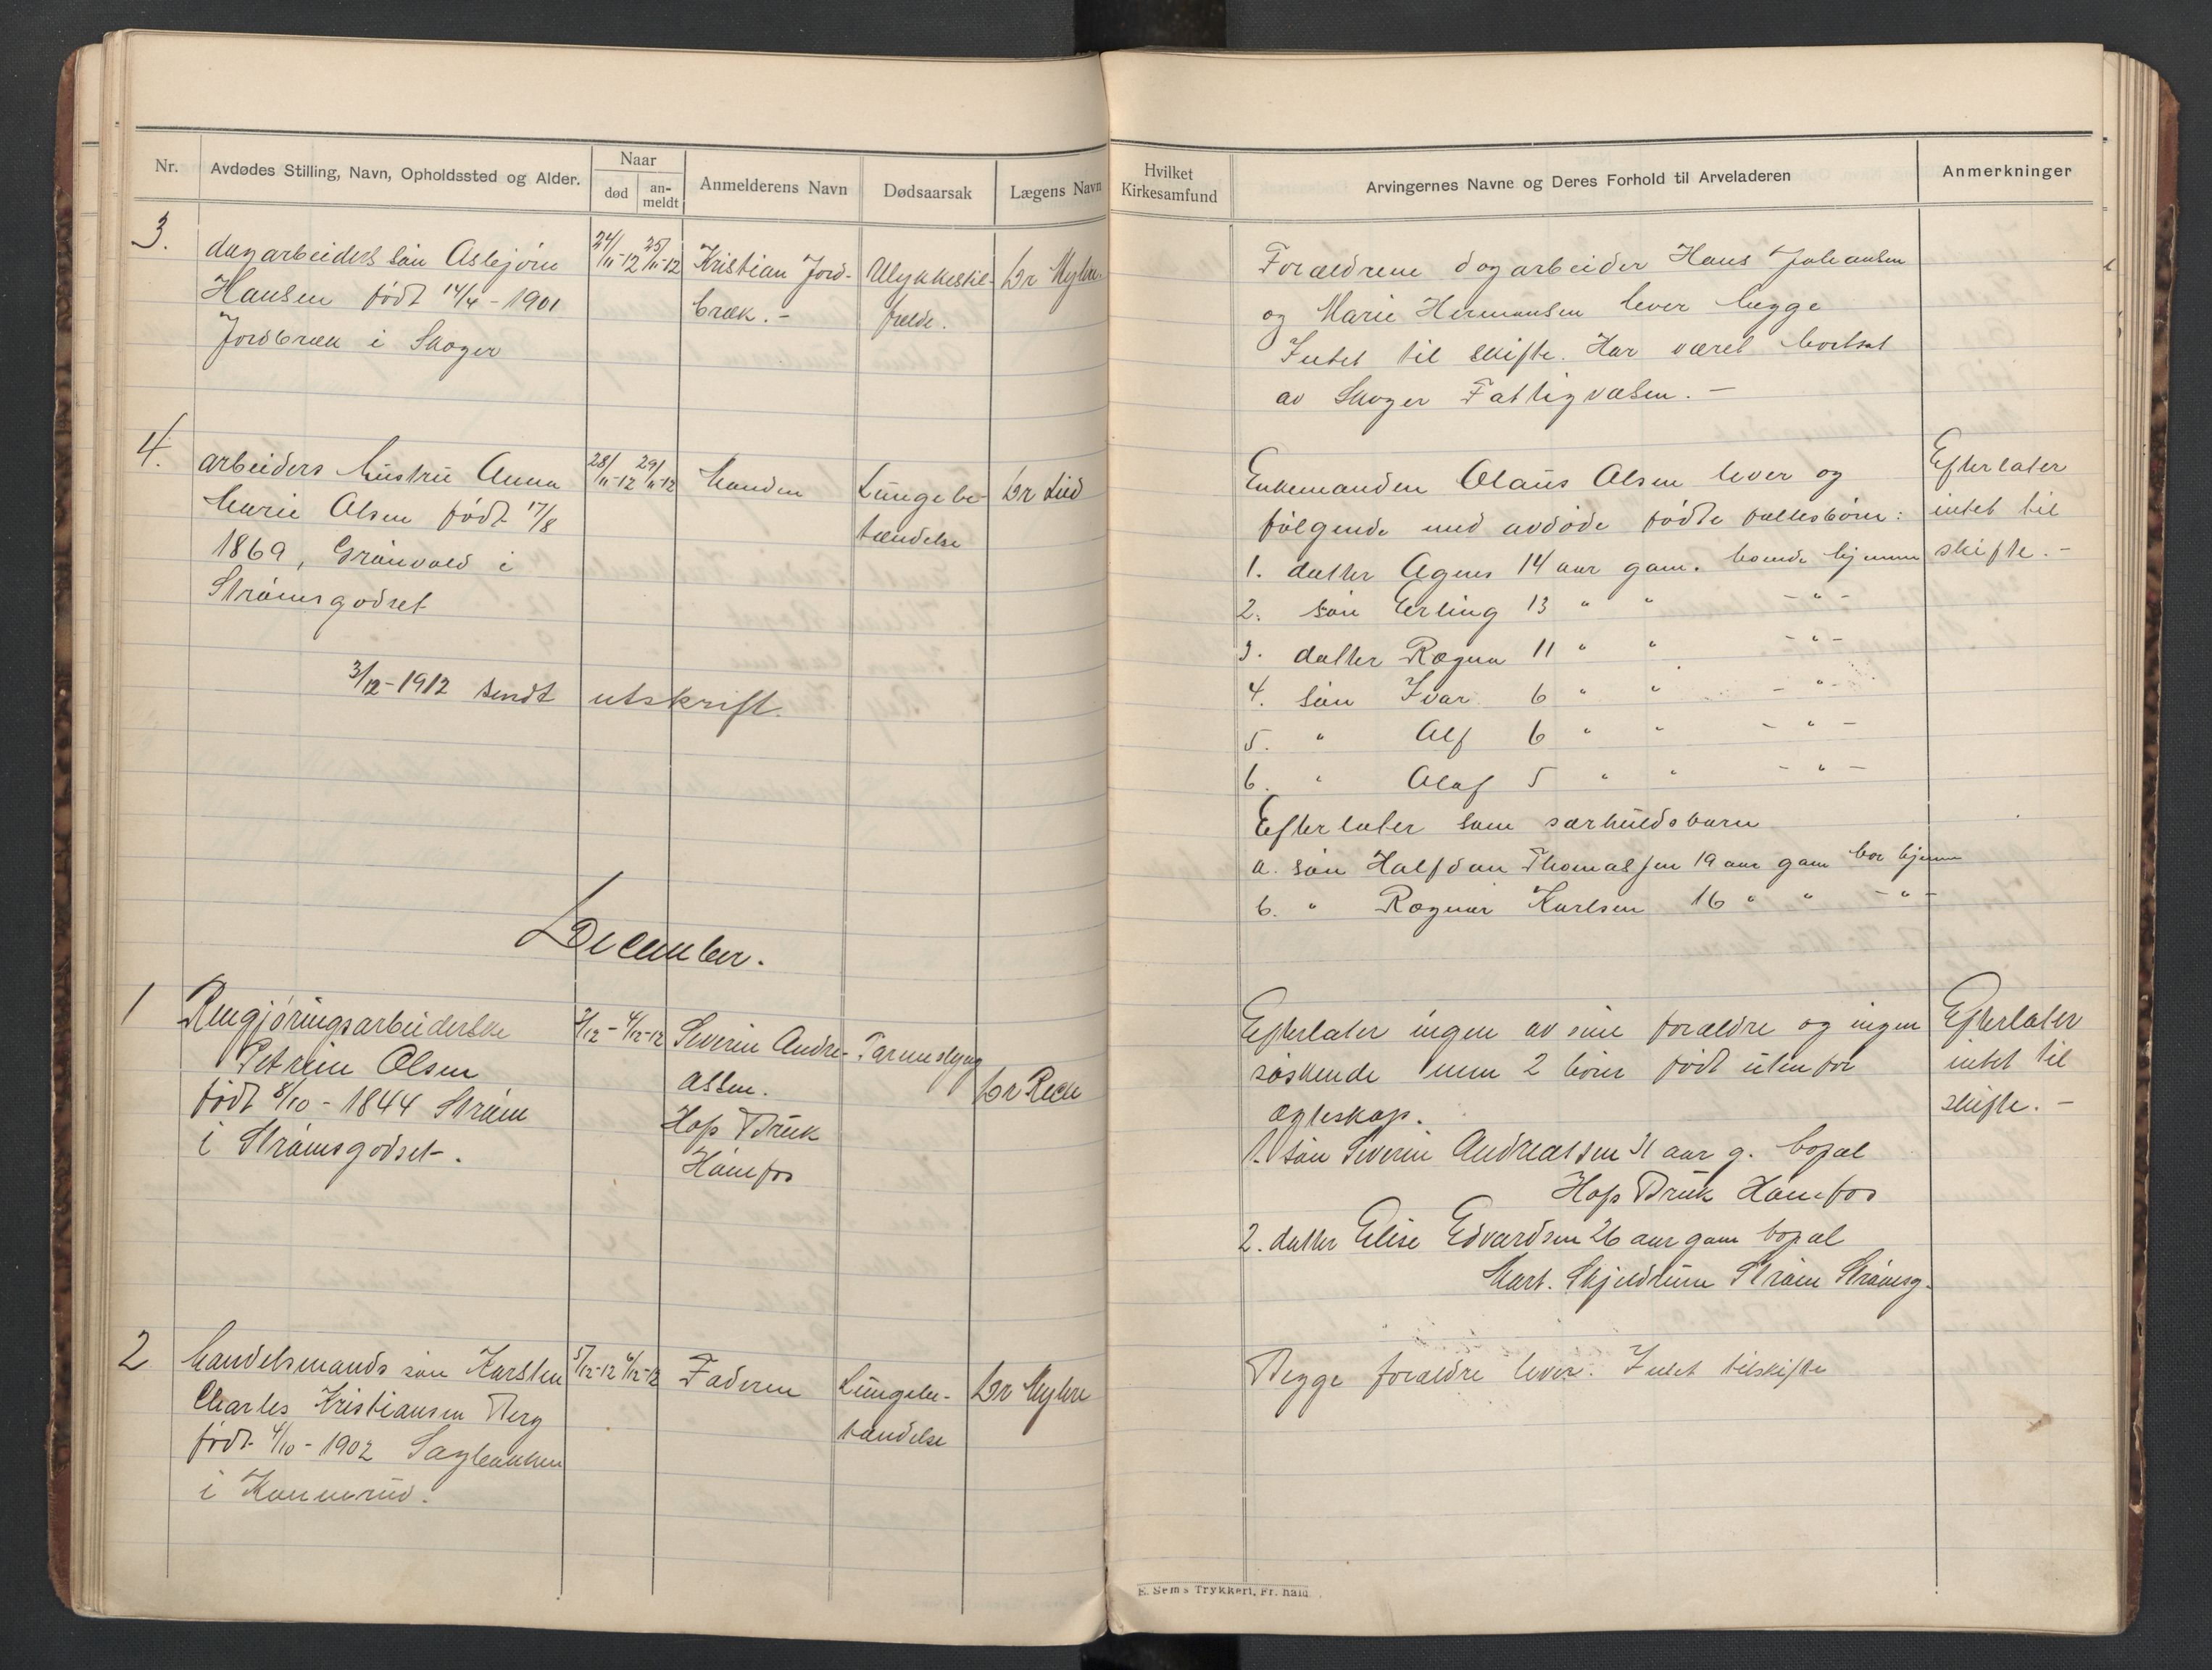 Nr.
Avdødes Stilling, Navn, Opholdssted og Alder.
Naar
død
an-
meldt
Anmelderens Navn
Dødsaarsak
Lægens Navn
Hvilket
Kirkesamfund
Arvingernes Navne og Deres Forhold til Arveladeren
Anmerkninger
3.
dagarbeiders søn Asbjørn
Hansen født 14/4 - 1901
Jordbræk i Skoger
24/11-12 25/11-12
Kristian Jord-
bræk. -
Ulykkestil-
fælde.
Dr Myhre
Forældrene dagarbeider Hans Johansen
og Marie Hermansen lever begge
Intet til skifte. Har været bortsat
av Skoger Fattigvæsen. -
4.
arbeiders hustru Anna
Marie Olsen født 17/8
1869, Grønvold i
Strømsgodset
28/11-12 29/11-12
Manden
Lungebe-
tændelse
Dr Lied
3/12-1912 sendt utskrift.
Enkemanden Olaus Olsen lever og
følgende med avdøde fødte fællesbørn:
1. datter Agnes 14 aar gam. boende hjemme
2. søn Erling 13 " " - " -
3. datter Ragna 11 " " - " -
4. søn Ivar 6 " " - " -
5. " Alf 6 " " - " -
6. " Olaf 5 " " - " -
Efterlater som særkuldsbarn
a. søn Halfdan Thomassen 19 aar gam bor hjemme
b. " Ragnar Karlsen 16 " " - " -
Efterlater
intet til
skifte. -
December.
1
Rengjøringsarbeiderske
Petrine Olsen
født 8/10 - 1844 Strøm
i Strømsgodset.
3/12 - 4/12-12
Severin Andre-
assen.
Hofs Bruk
Hønefos
Tarmslyng
Dr Reck
Efterlater ingen av sine forældre og ingen
søskende men 2 børn født utenfor
ægteskap.
1. søn Severin Andreassen 31 aar g. bopæl
Hofs Bruk Hønefos
2. datter Elise Edvardsen 26 aar gam bopæl
Mart. Skjeldrum Strøm Strømsg.
Efterlater
intet til
skifte. -
2
handelsmands søn Karsten
Charles Kristiansen Berg
født 4/10 - 1902 Sagbakken
i Konnerud.
5/12-12 6/12-12
Faderen
Lungebe-
tændelse
Dr Myhre
Begge forældre lever. Intet til skifte
E. Sem's Trykkeri, Fr.hald